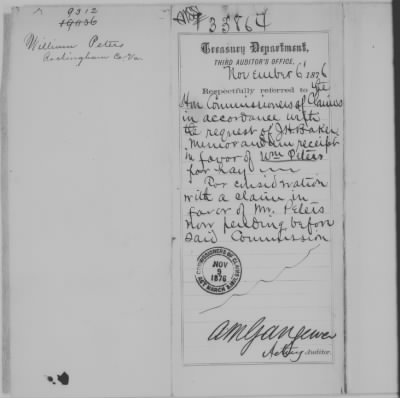 9312
19036
William Peters
Rockingham Co Va.
33764
Treasury Department,
THIRD AUDITOR'S OFFICE,
November 6 1876
Respectfully referred to the
Hon Commissioners of Claims
in accordance with
the request of J H Baker
Memorandum receipt
in favor of Wm Peters
for hay
For consideration
with a claim in
favor of Mr. Peters
now pending before
said Commission
COMMISSIONERS OF CLAIMS
NOV
9
1876
ACT MARCH 3, 1871
A M Gangewer
Acting Auditor.